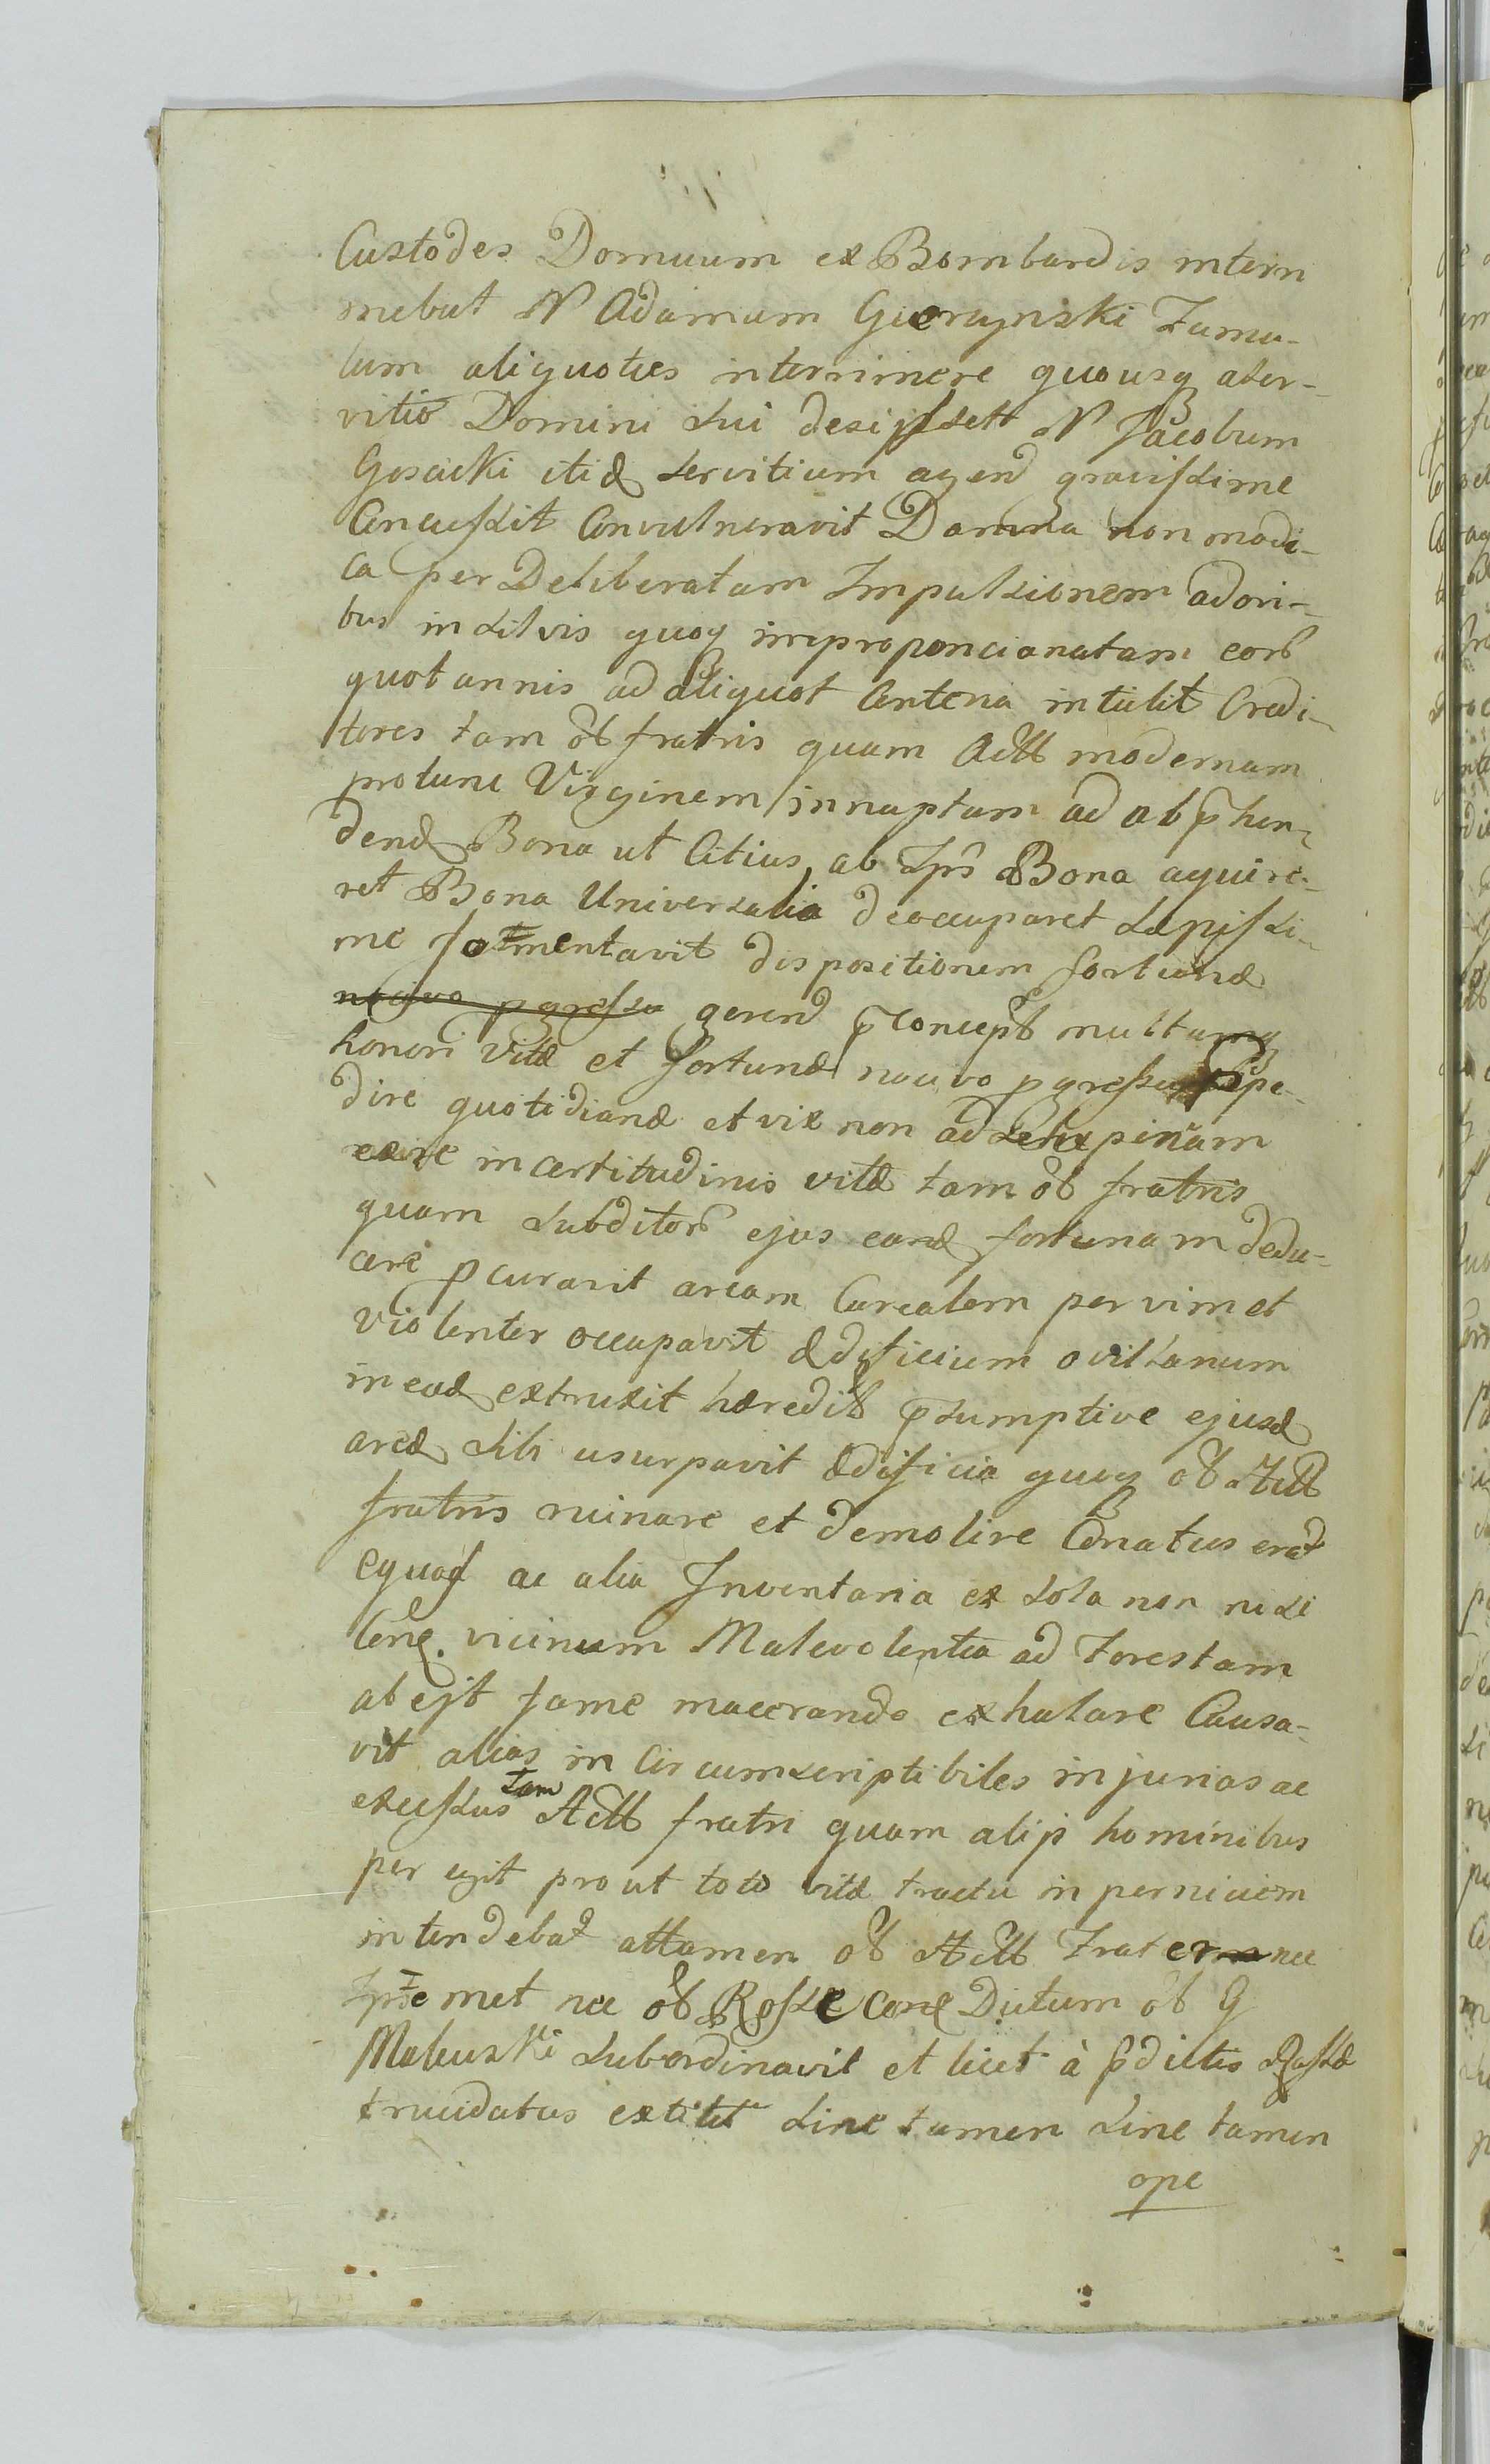 Custodes Domuum ex Bombardis interi
mebat N Adamum Gierczynski Famu-
lum aliquoties interimere quousq aser-
vitio Domini sui desijsset N Jacobum
Gosicki itid servitium agend gravissime
Concussit Convulneravit Damna non modi-
ca per Deliberatam Impulsionem
in silvis quoq improporcionatam eor
quotannis ad aliquot Centena intulit Credi-
tores tam fratris quam Act modernam
protunc Virginem innuptam ad
dend Bona ut Citius ab Bona aquire-
ret Bona Universalia deoccuparet sæpissi-
me fomentavit dispositionem fortunæ
nocivo pgressu gerend pconcept multumq
honori Vitæ et fortunæ nocivo pgressu
dire quotidianæ et vix non ad
incertitudinis vitæ tam fratris
quam subditor ejus eand fortunam dedu-
cere pcuravit aream per vim et
violenter occupavit ædificium ovillanum
in ead extruxit hæredit psumptive ejusd
areæ sibi usurpavit ædificia quoq Act
fratris ruinare et demolire Conatus erat
equas ac alia Inventaria ex sola non nisi
vicinum Malevolentia ad Forestam
abejit fame macerando exhalare Causa-
vit alias in Circumscriptibiles injurias ac
excessus tam Act fratri quam alijs hominibus
per egit prout toto vitæ tractu in perniciem
intendebat attamen Act Frater nec
met nec Dictum G
Subordinavit et licet à pdictis
trucidatus extitit sine tamen sine tamen
ope